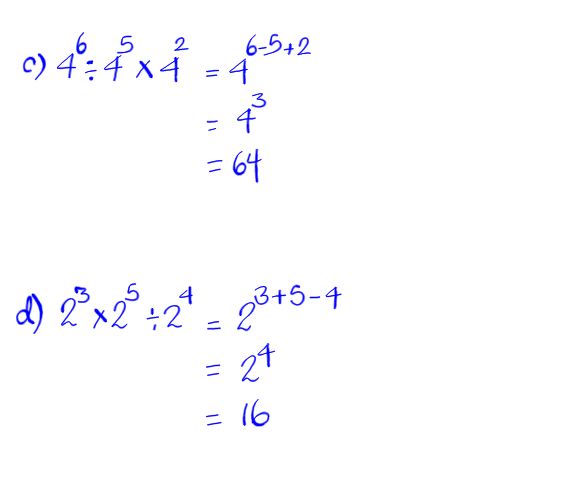 c) 4⁶ ÷ 4⁵ × 4² = 4⁶⁻⁵⁺²
= 4³
= 64
d) 2³ × 2⁵ ÷ 2⁴ = 2³⁺⁵⁻⁴
= 2⁴
= 16